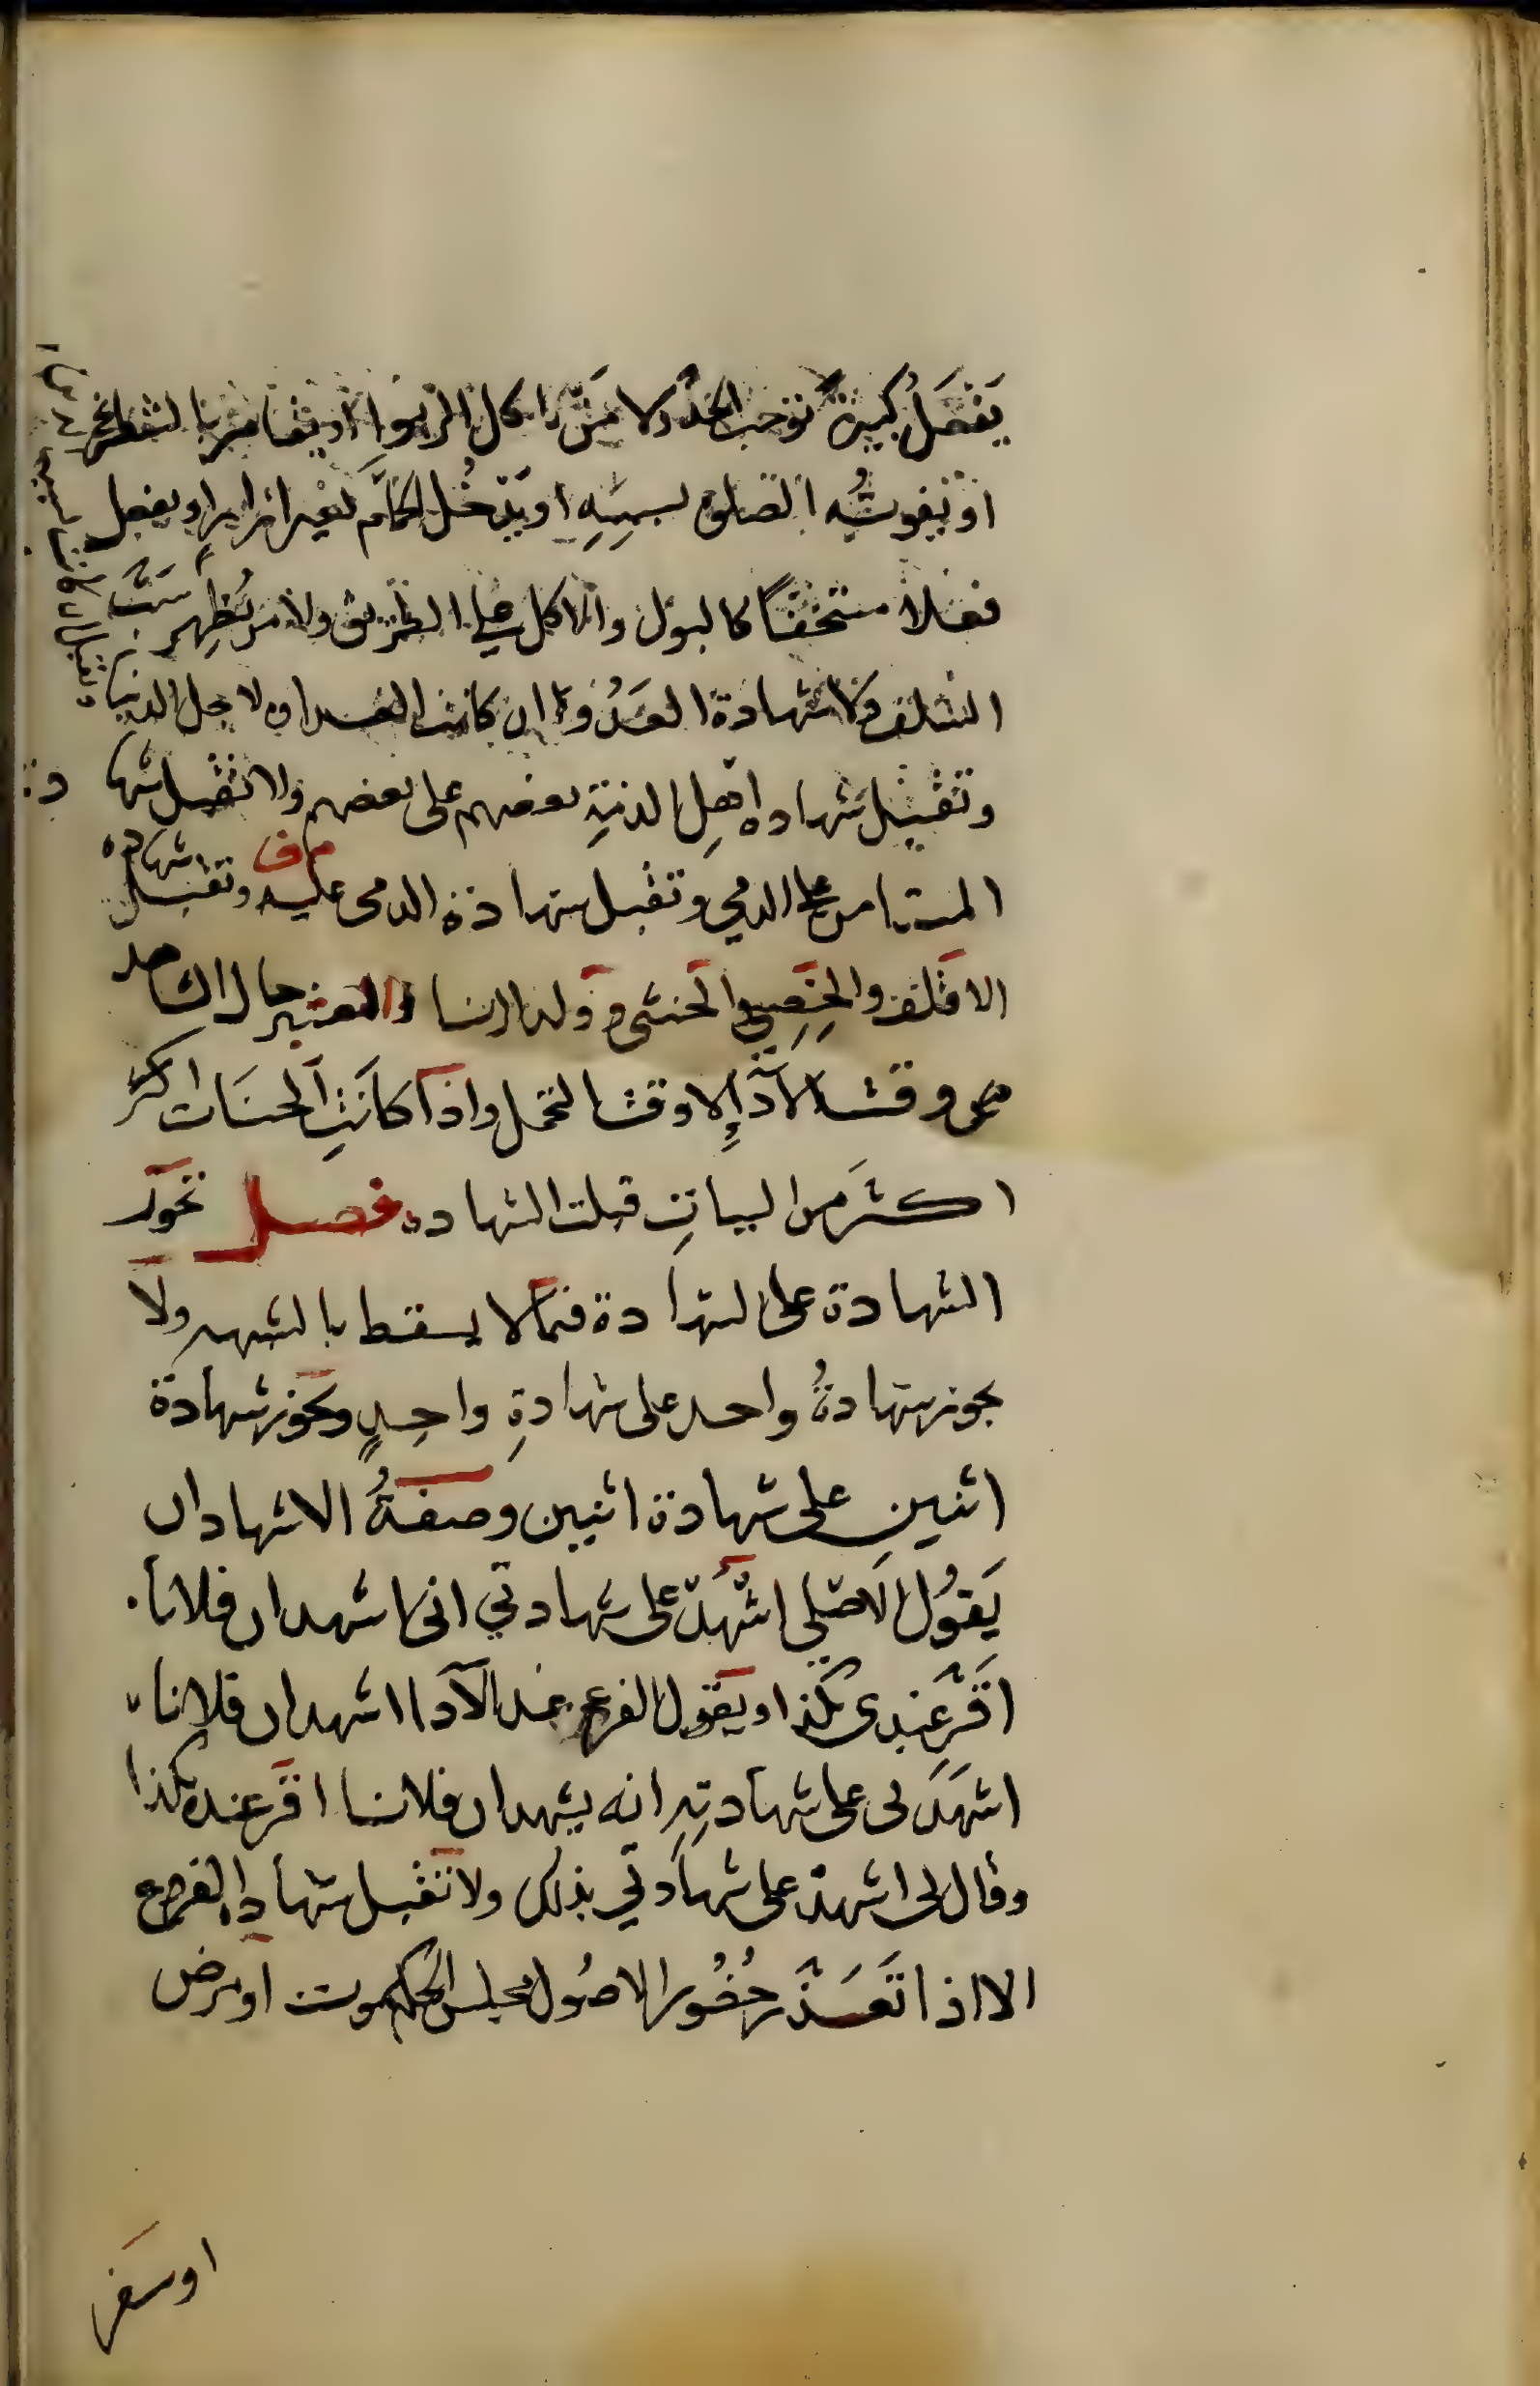 يَفعَلُ كبيرةً توجب الحدَّ ولا مَنْ ياكل الربوا او يقامر بالشطرنج
او تفوتُه الصلوة بسببِهِ او يَدْخُل الحمّام بغير ازار او يفعل
فعلاً مستخفّاً كالبول والاكل على الطريق ولا من يُظهِر سَبَّ
السّلف ولا شهادة العَدُوّ ان كانت العداوة لاجل الدنيا
وتقبل شهادة اهلِ الذمّةِ بعضهم على بعضهم ولا تقبل شها دة
المستامن على الذمي وتقبل شهادة الذمى عليه وتقبل شهادة
الاقلف والخَصِيّ والخنثى وولد الزنا والمعتبر حال الشاهد
وقت الاَداءِ لا وقت التحمل واذا كانَتِ الحسَنات اكثر
اكثرَ من السيّاتِ قبلت الشهادة فصل تجوز
الشهادة على الشهادة فيما لا يسقط بالشبهة ولا
يجوز شهادةُ واحد على شهادةِ واحِدٍ وتجوز شهادة
اثنينِ على شهادة اثنين وصفةُ الاشهاد ان
يَقوُل الاصلي اشهد على شهادتي انى اشهد ان فلاناً
اقَرَّ عِندى بكذا ويقول الفرع عند الاَدا اشهد ان فلانا
اشهَدَنى على شهادتِهِ انه يشهد ان فلانا اقر عنده بكذا
وقال لى اشهد على شهادتي بذلك ولا تقبل شهادة الفروع
الا اذا تعَذَّر حُضُور الاصُول مجلس الحكم بموت او مرض
او سفر